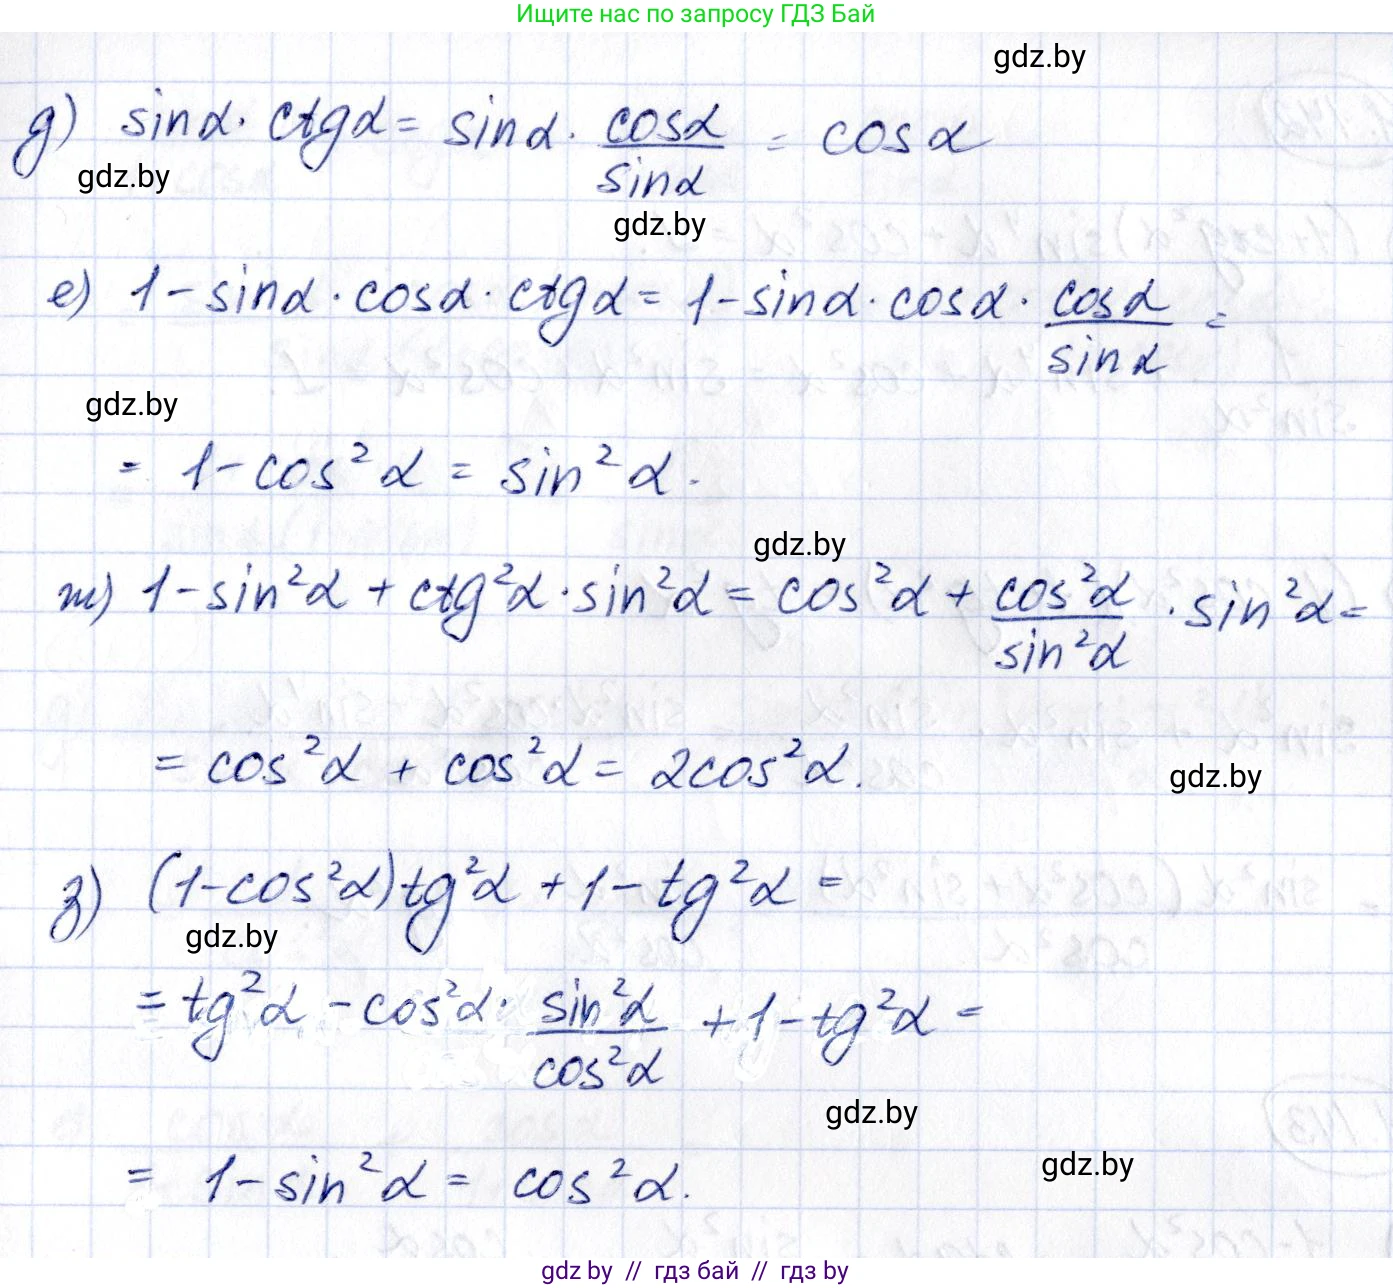 Ищите нас по запросу ГДЗ Бай
gdz.by
д) sinα · ctgα = sinα · cosα/sinα = cosα
gdz.by
gdz.by
е) 1 - sinα · cosα · ctgα = 1 - sinα · cosα · cosα/sinα =
gdz.by
= 1 - cos²α = sin²α.
gdz.by
ж) 1 - sin²α + ctg²α · sin²α = cos²α + cos²α/sin²α · sin²α =
= cos²α + cos²α = 2cos²α.
gdz.by
з) (1 - cos²α)tg²α + 1 - tg²α =
gdz.by
= tg²α - cos²α · sin²α/cos²α + 1 - tg²α =
gdz.by
gdz.by
= 1 - sin²α = cos²α.
gdz.by // гдз бай // гдз by